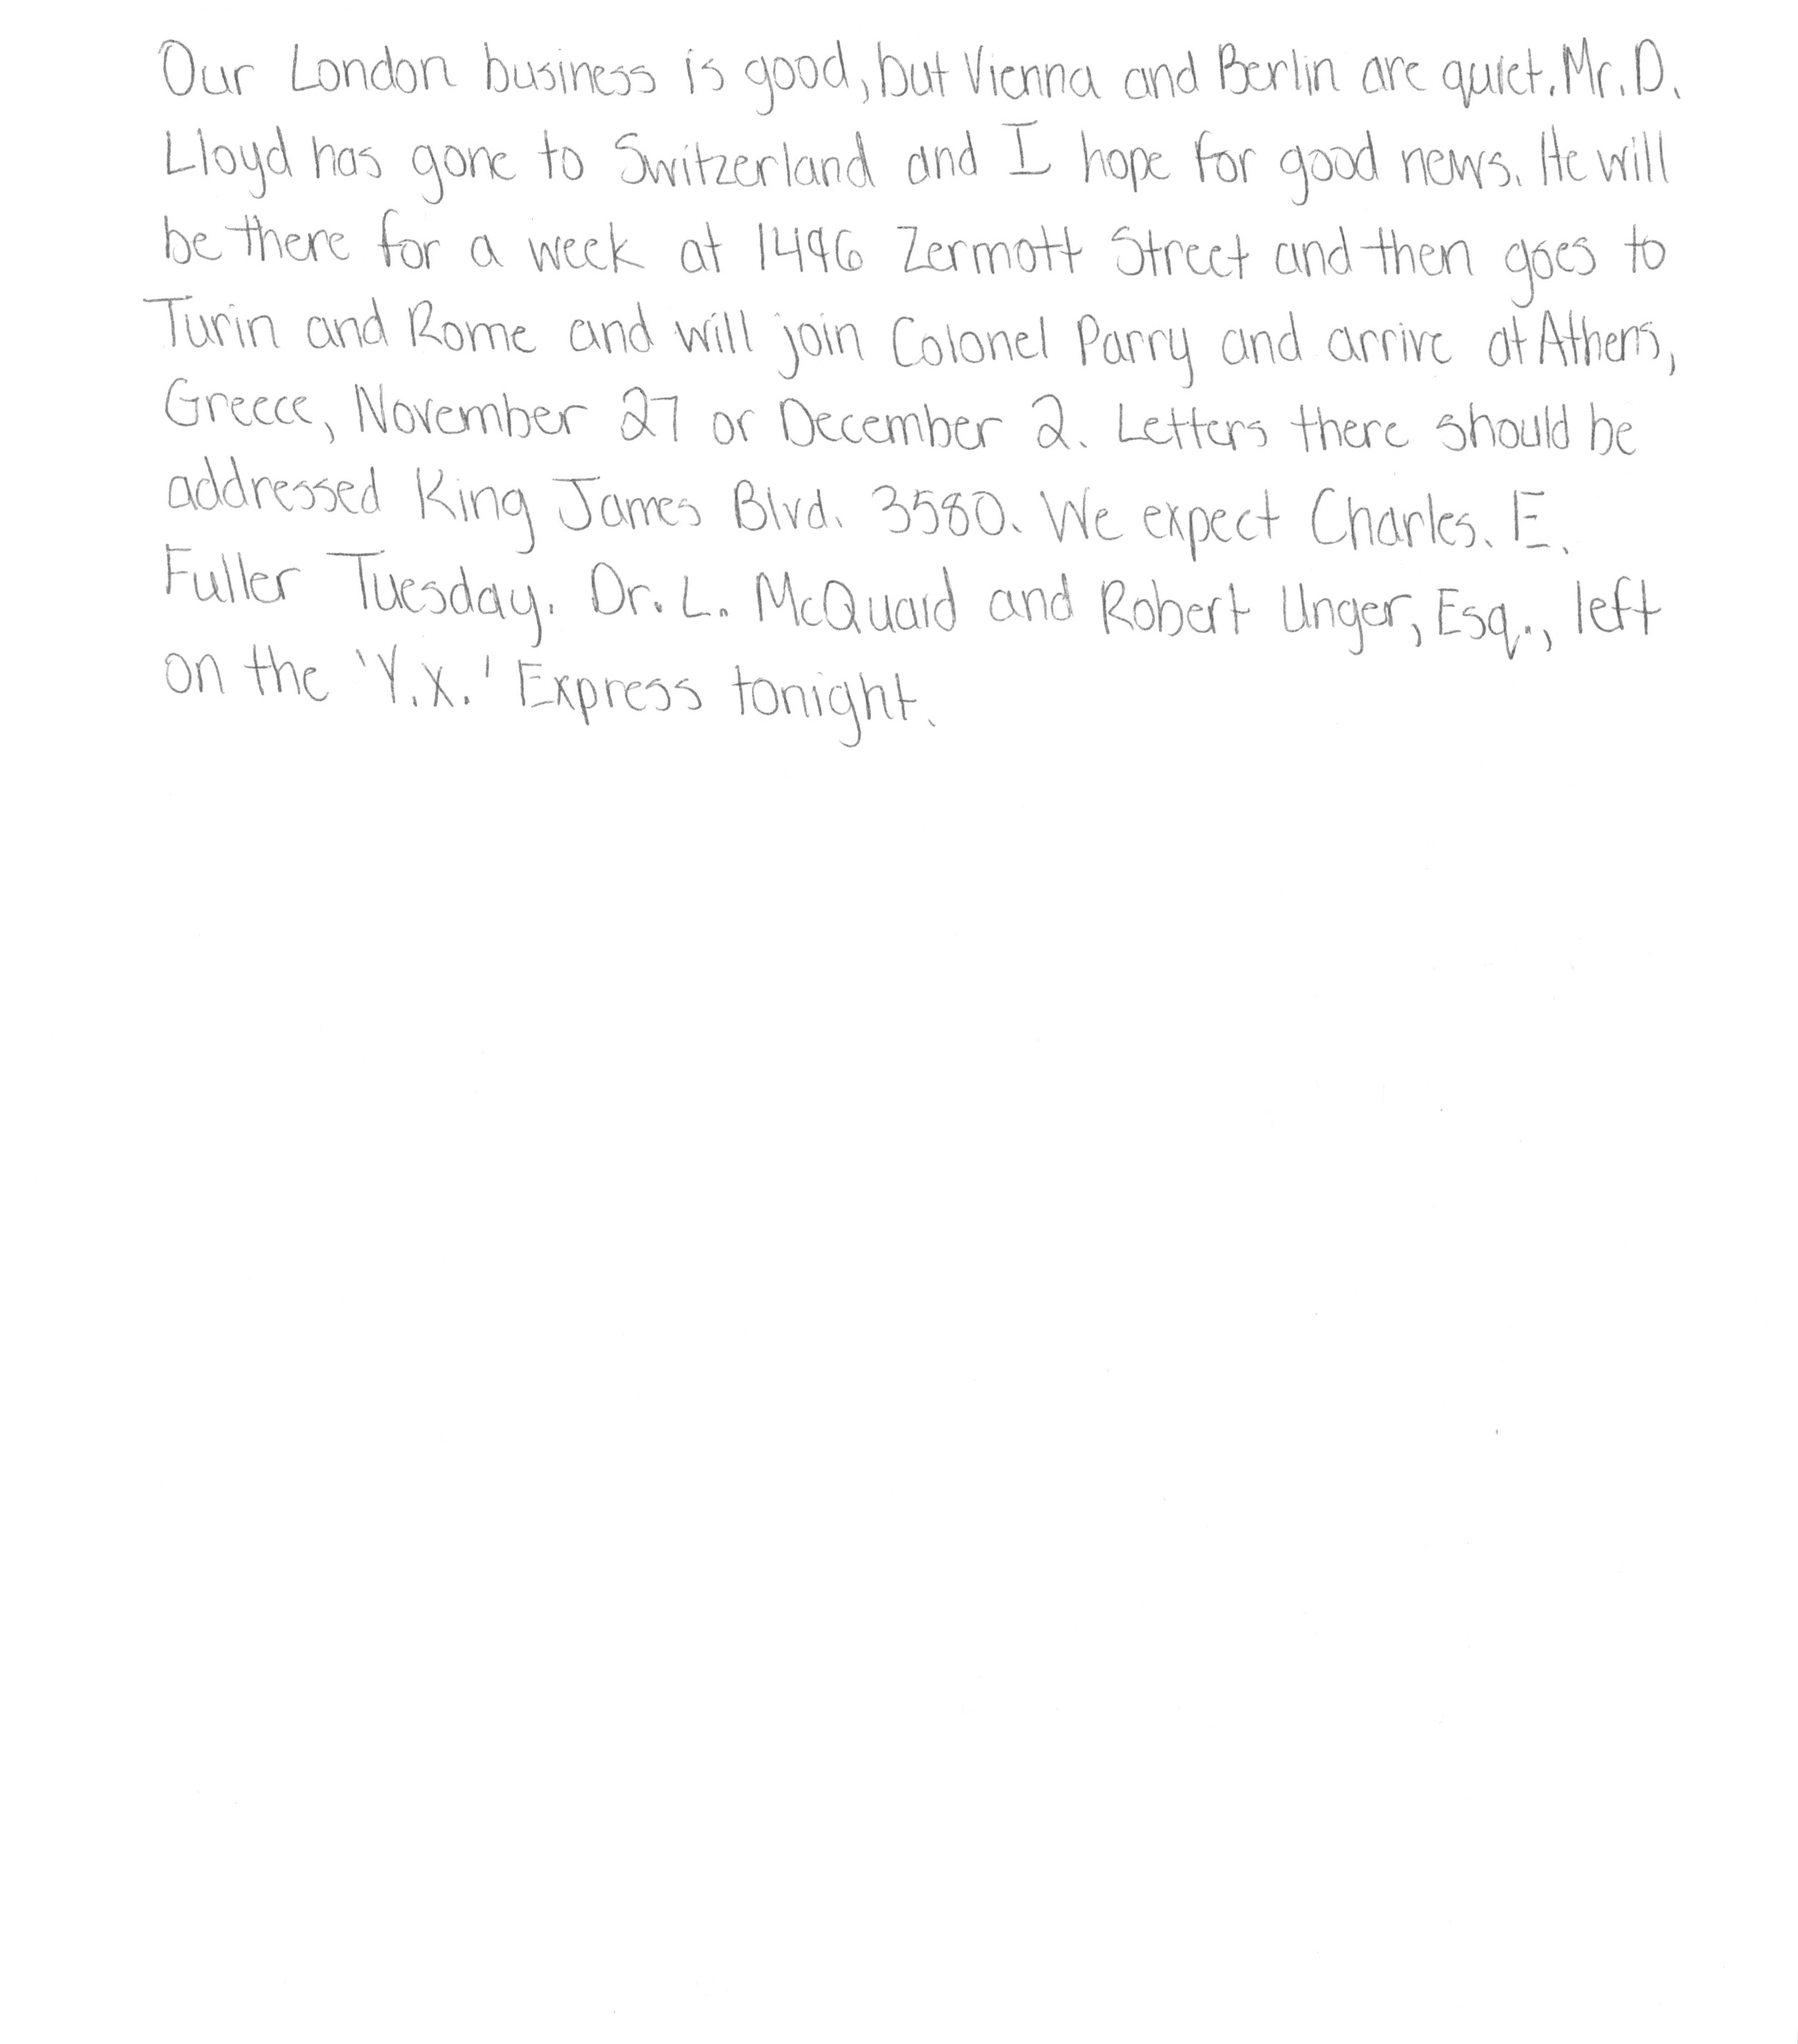 Our London business is good, but Vienna and Berlin are quiet. Mr. D.
Lloyd has gone to Switzerland and I hope for good news. He will
be there for a week at 1496 Zermott Street and then goes to
Turin and Rome and will join Colonel Parry and arrive at Athens,
Greece, November 27 or December 2. Letters there should be
addressed King James Blvd. 3580. We expect Charles. E.
Fuller Tuesday. Dr. L. McQuaid and Robert Unger, Esq., left
on the 'Y.X.' Express tonight.